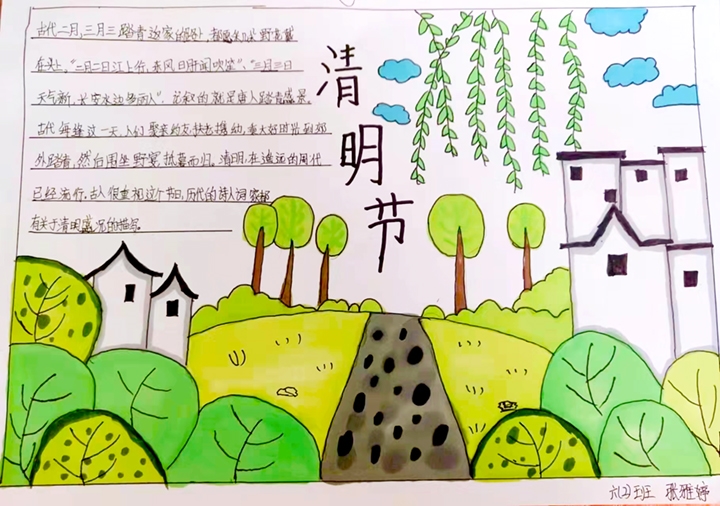 古代二月,三月三踏青
在头上,"二月二日江上行,东风日开闻吹笙","三月三日
天气新,长安水边多丽人",叙的就是唐人踏青盛景。
古代每逢这一天,人们聚亲约友,扶老携幼,乘大好时光到郊
外踏青,然后围坐野宴,抵暮而归。清明,在遥远的周代
已经流行,古人很重视这个节日,历代的诗人词家都
有关于清明盛况的描写。
清明节
六(2)班 张雅婷